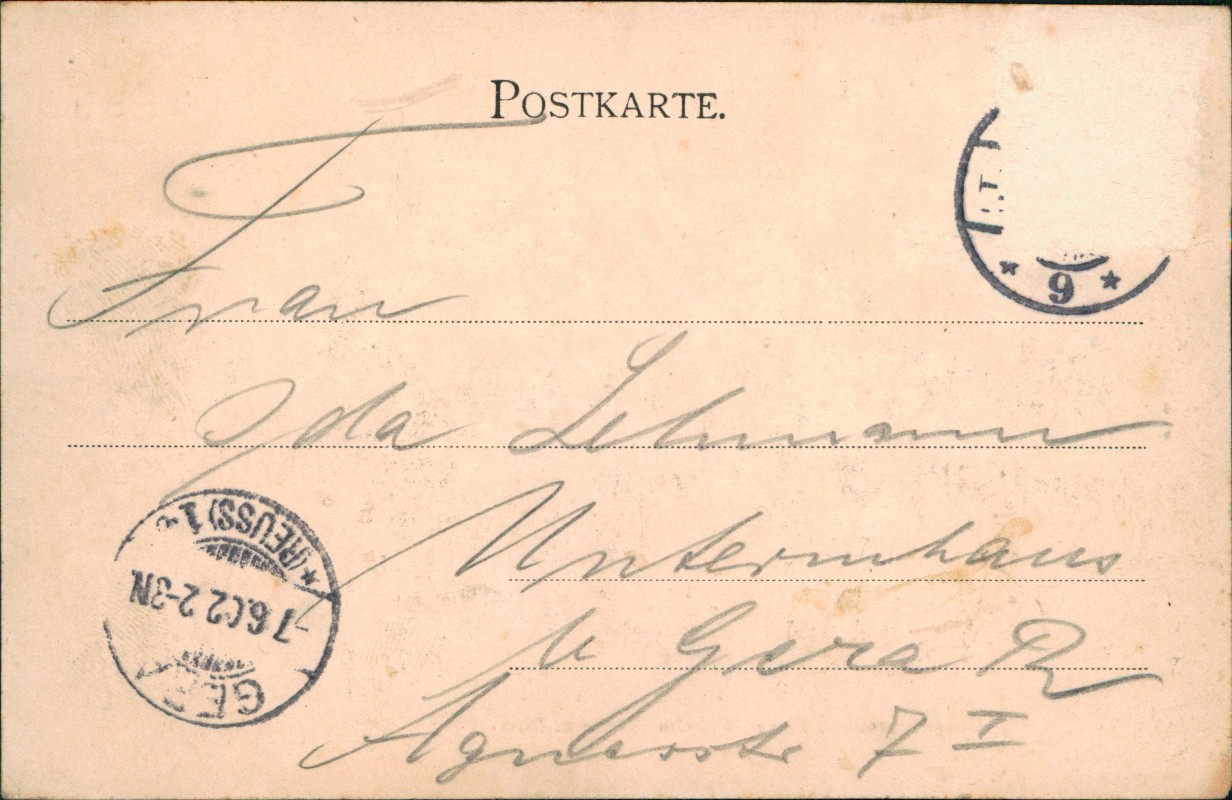 POSTKARTE.
Frau
Ida Lehmann
Untermhaus
b Gera R
Agnesstr 7 I
9
GERA
-7 6.02 2-3N.
* (REUSS) 1